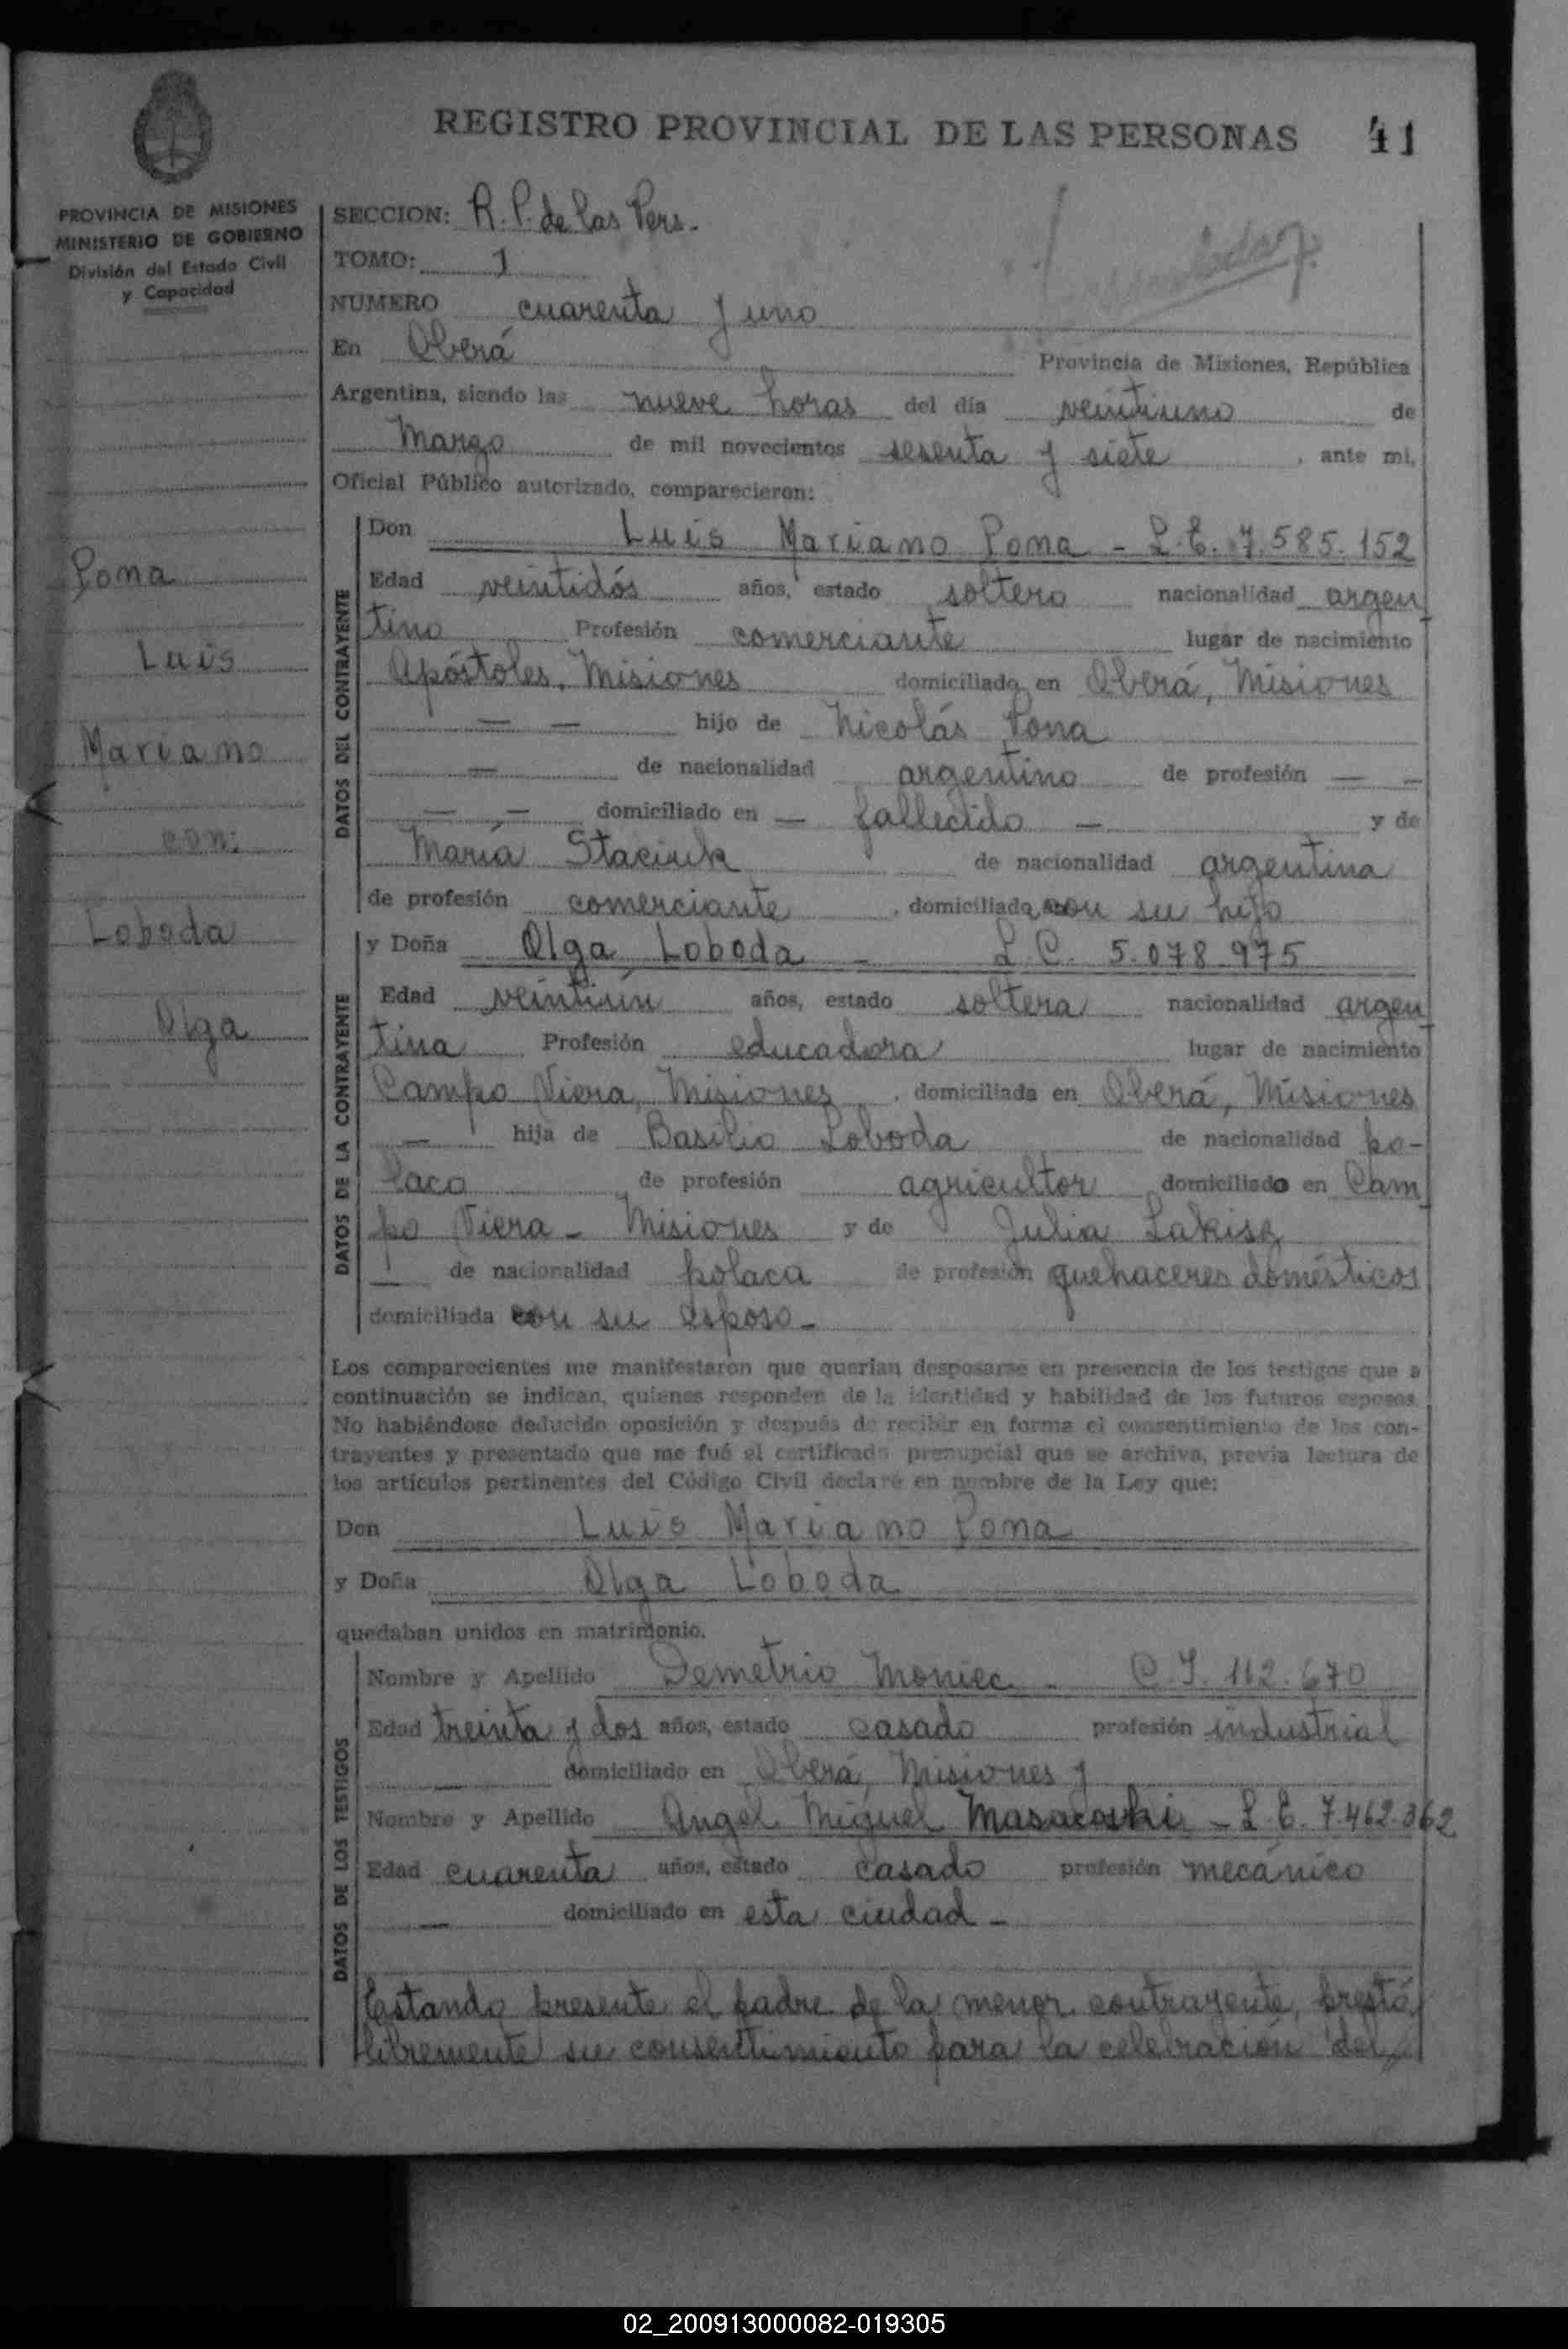 REGISTRO PROVINCIAL DE LAS PERSONAS 41
PROVINCIA DE MISIONES
MINISTERIO DE GOBIERNO
División del Estado Civil
y Capacidad
Pona
Luis
Mariano
con:
Loboda
Olga
SECCION: R. P. de las Pers.
TOMO: 1
NUMERO cuarenta y uno
En Oberá Provincia de Misiones, República
Argentina, siendo las nueve horas del día veintiuno de
Marzo de mil novecientos sesenta y siete, ante mi,
Oficial Público autorizado, comparecieron:
DATOS DEL CONTRAYENTE
Don Luis Mariano Pona - L.E. 7.585.152
Edad veintidós años, estado soltero nacionalidad argen
tino Profesión comerciante lugar de nacimiento
Apóstoles, Misiones domiciliado en Oberá, Misiones
— — hijo de Nicolás Pona
— de nacionalidad argentino de profesión — —
— — domiciliado en — fallecido — y de
María Staciuk de nacionalidad argentina
de profesión comerciante, domiciliada con su hijo
DATOS DE LA CONTRAYENTE
y Doña Olga Loboda - L.C. 5.078.975
Edad veintiún años, estado soltera nacionalidad argen
tina Profesión educadora lugar de nacimiento
Campo Viera, Misiones, domiciliada en Oberá, Misiones
— hija de Basilio Loboda de nacionalidad po-
laco de profesión agricultor domiciliado en Cam
po Viera - Misiones y de Julia Lakise
— de nacionalidad polaca de profesión quehaceres domésticos
domiciliada con su esposo -
Los comparecientes me manifestaron que querían desposarse en presencia de los testigos que a
continuación se indican, quienes responden de la identidad y habilidad de los futuros esposos.
No habiéndose deducido oposición y después de recibir en forma el consentimiento de los con-
trayentes y presentado que me fué el certificado prenupcial que se archiva, previa lectura de
los artículos pertinentes del Código Civil declaré en nombre de la Ley que:
Don Luis Mariano Pona
y Doña Olga Loboda
quedaban unidos en matrimonio.
DATOS DE LOS TESTIGOS
Nombre y Apellido Demetrio Moniec - C.I. 112.670
Edad treinta y dos años, estado casado profesión industrial
— domiciliado en Oberá, Misiones y
Nombre y Apellido Angel Miguel Masacoski - L.E. 7.462.362
Edad cuarenta años, estado casado profesión mecánico
— domiciliado en esta ciudad -
Estando presente el padre de la menor contrayente, prestó
libremente su consentimiento para la celebración del
02_200913000082-019305